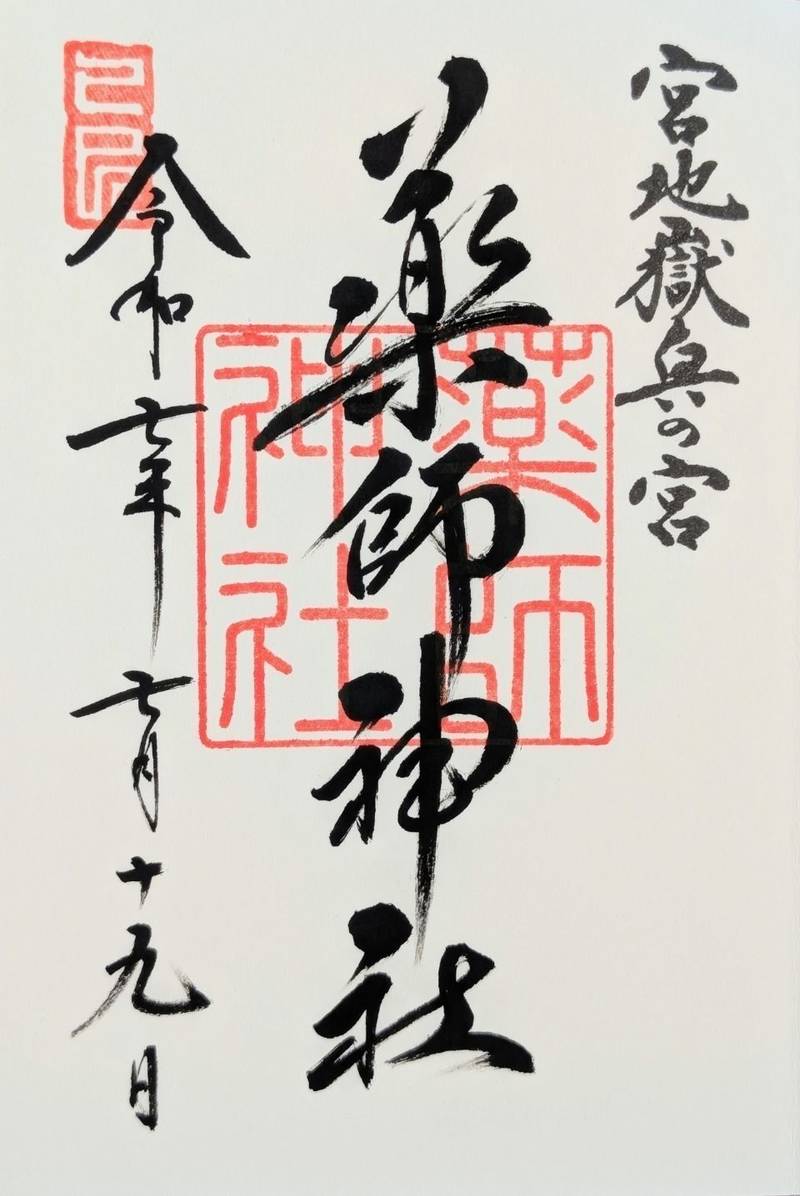 宮地嶽奥の宮
薬師神社
令和七年七月十九日
薬師
神社